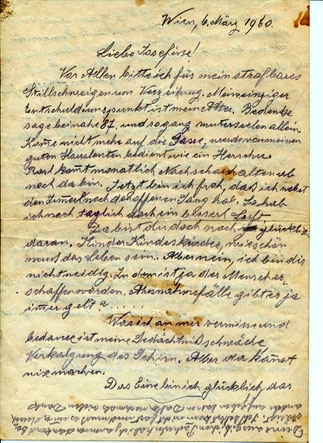 Wien, 6. März 1960.
Liebe Josefine!
Vor Allem bitte ich für mein strafbares
Stillschweigen um Verzeihung. Mein einziger
Entschuldungspunkt ist mein Alter. Bedenke
sage beinahe 87, und so ganz mutterseelen allein.
nicht mehr auf die Gasse, werde von meinen
guten Hausleuten bedient wie ein Herscher.
Karl kommt monatlich Nachschau halten ob
noch da bin. Jetzt bin ich froh, daß ich nebst
dem Zimmer noch den offenen Gang hab. So hab
ich noch täglich doch ein bisserl Luft
Da bist du doch noch glücklich
daran, Kinder Kindeskinder, wie schön
muß das Leben sein. Aber nein, ich bin dir
nicht neidig. Zu dem ist ja der Mensch
schaffen worden. Ausnahmsfälle gibt es ja
immer gelt?
Was ich an mir vermisse und
bedaure ist meine Gedächtnisschwäche
Verkalkung des Gehirn. Aber da kannst
nix machen.
Das Eine bin ich glücklich, das